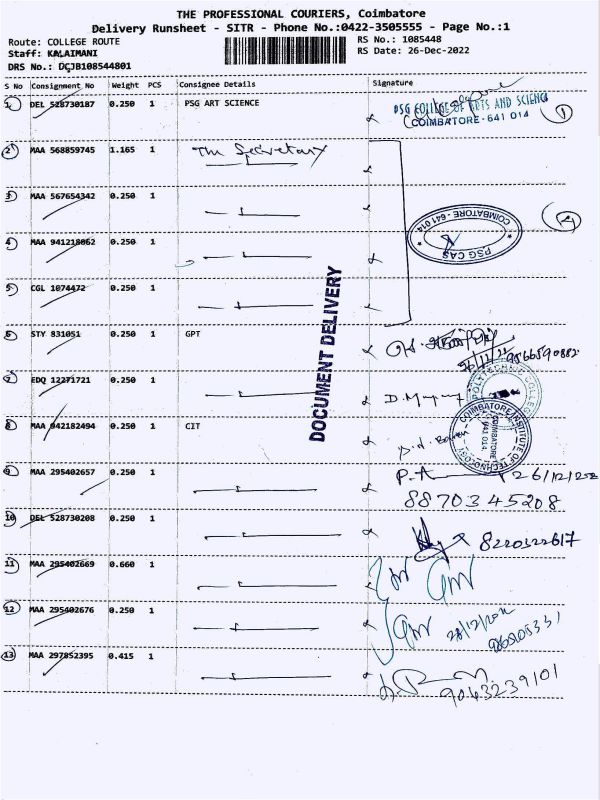 THE PROFESSIONAL COURIERS, Coimbatore
Delivery Runsheet - SITR - Phone No.:0422-3505555 - Page No.:1
Route: COLLEGE ROUTE
Staff: KALAIMANI
DRS No.: DCJB108544801
RS No.: 1085448
RS Date: 26-Dec-2022
S No Consignment No Weight PCS Consignee Details Signature
1 DEL 528730187 0.250 1 PSG ART SCIENCE
PSG COLLEGE OF ARTS AND SCIENCE
COIMBATORE - 641 014
1
2 MAA 568859745 1.165 1 The Secretary
3 MAA 567654342 0.250 1
4 MAA 941218062 0.250 1
COIMBATORE - 641 014
PSG CAS
4
5 CGL 1074472 0.250 1
DOCUMENT DELIVERY
6 STY 831051 0.250 1 GPT
9566590882
7 EDQ 12271721 0.250 1
POLYTECHNIC COLLEGE
8 MAA 942182494 0.250 1 CIT
COIMBATORE INSTITUTE OF TECHNOLOGY
COIMBATORE
641 014
9 MAA 295402657 0.250 1
P.A
8870345208
10 DEL 528730208 0.250 1
8220322617
11 MAA 295402669 0.660 1
12 MAA 295402676 0.250 1
13 MAA 297852395 0.415 1
9043239101